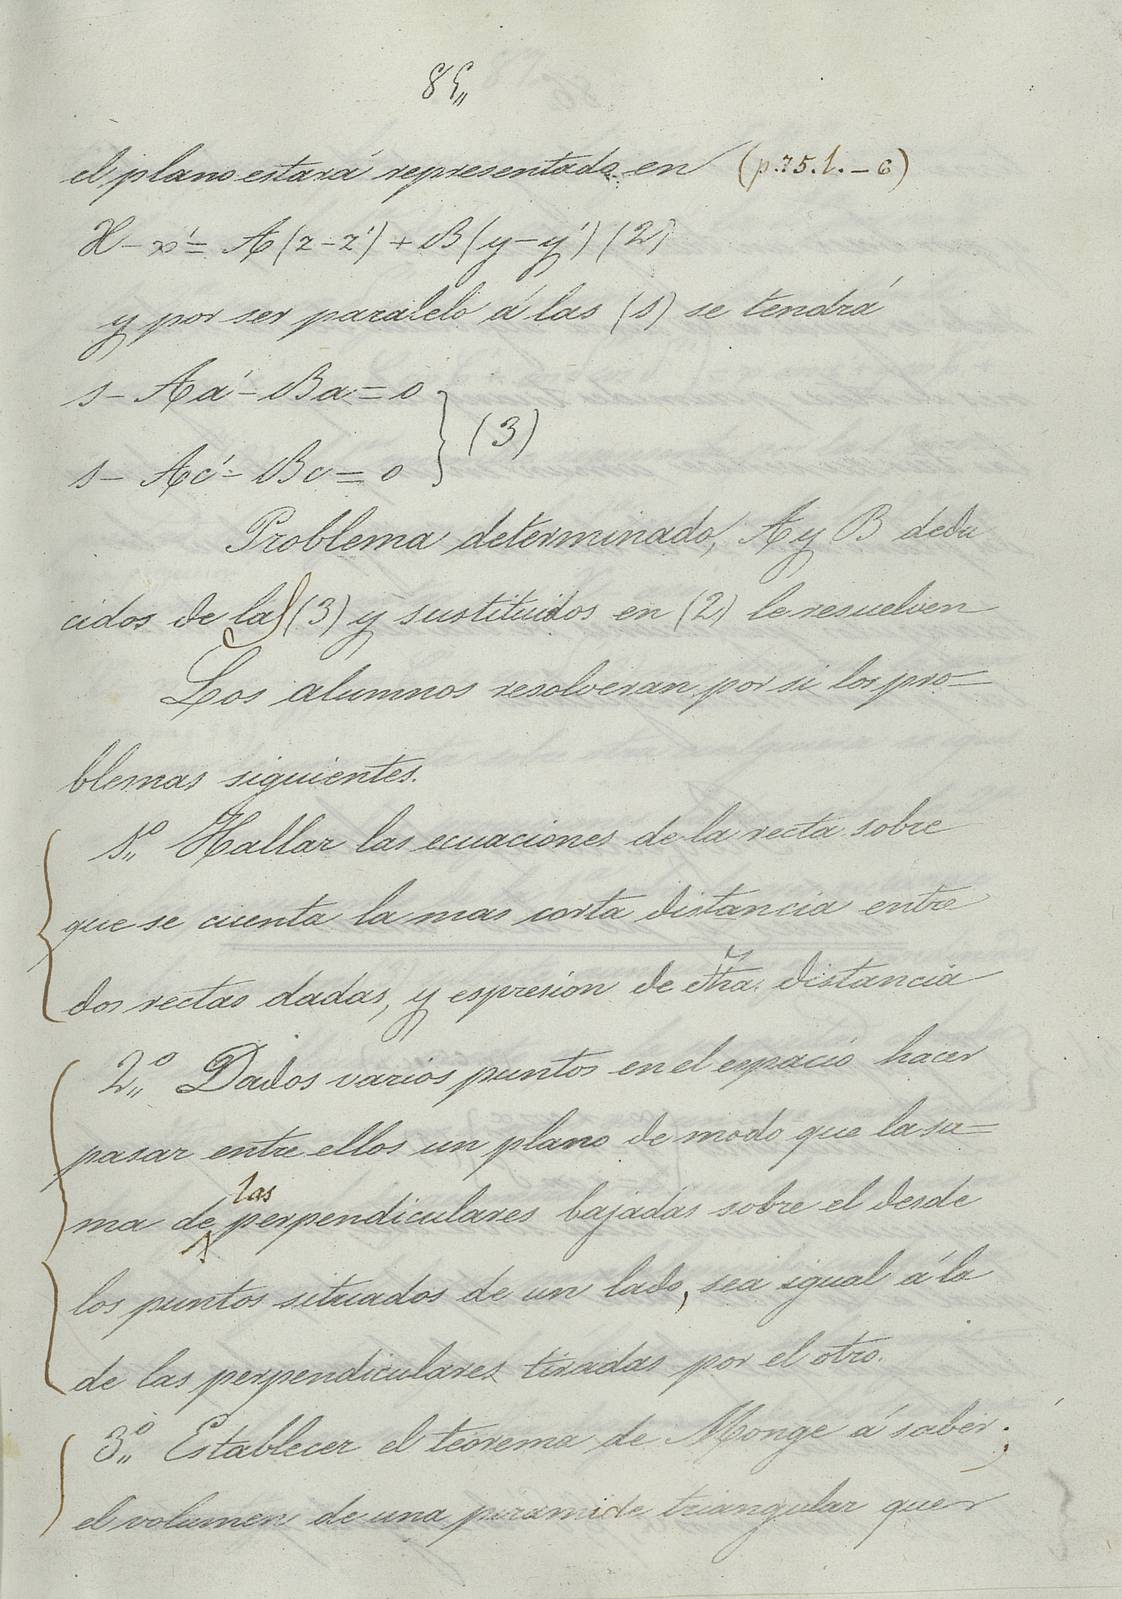 85„
el plano estará representado en (p.75.l.-6)
X - x' = A(z - z') + B(y - y') (2)
y por ser paralelo á las (1) se tendrá
1 - Aa' - Ba = 0
1 - Ac' - Bc = 0 } (3)
Problema determinado, A y B dedu
cidos de las (3) y sustituidos en (2) le resuelven
Los alumnos resolveran por si los pro=
blemas siguientes.
1º„ Hallar las ecuaciones de la recta sobre
que se cuenta la mas corta distancia entre
dos rectas dadas, y espresion de dha. distancia
2º„ Dados varios puntos en el espacio hacer
pasar entre ellos un plano de modo que la su=
ma de las perpendiculares bajadas sobre el desde
los puntos situados de un lado, sea igual á la
de las perpendiculares tiradas por el otro.
3º„ Establecer el teorema de Monge á saber;
el volumen de una piramide triangular que